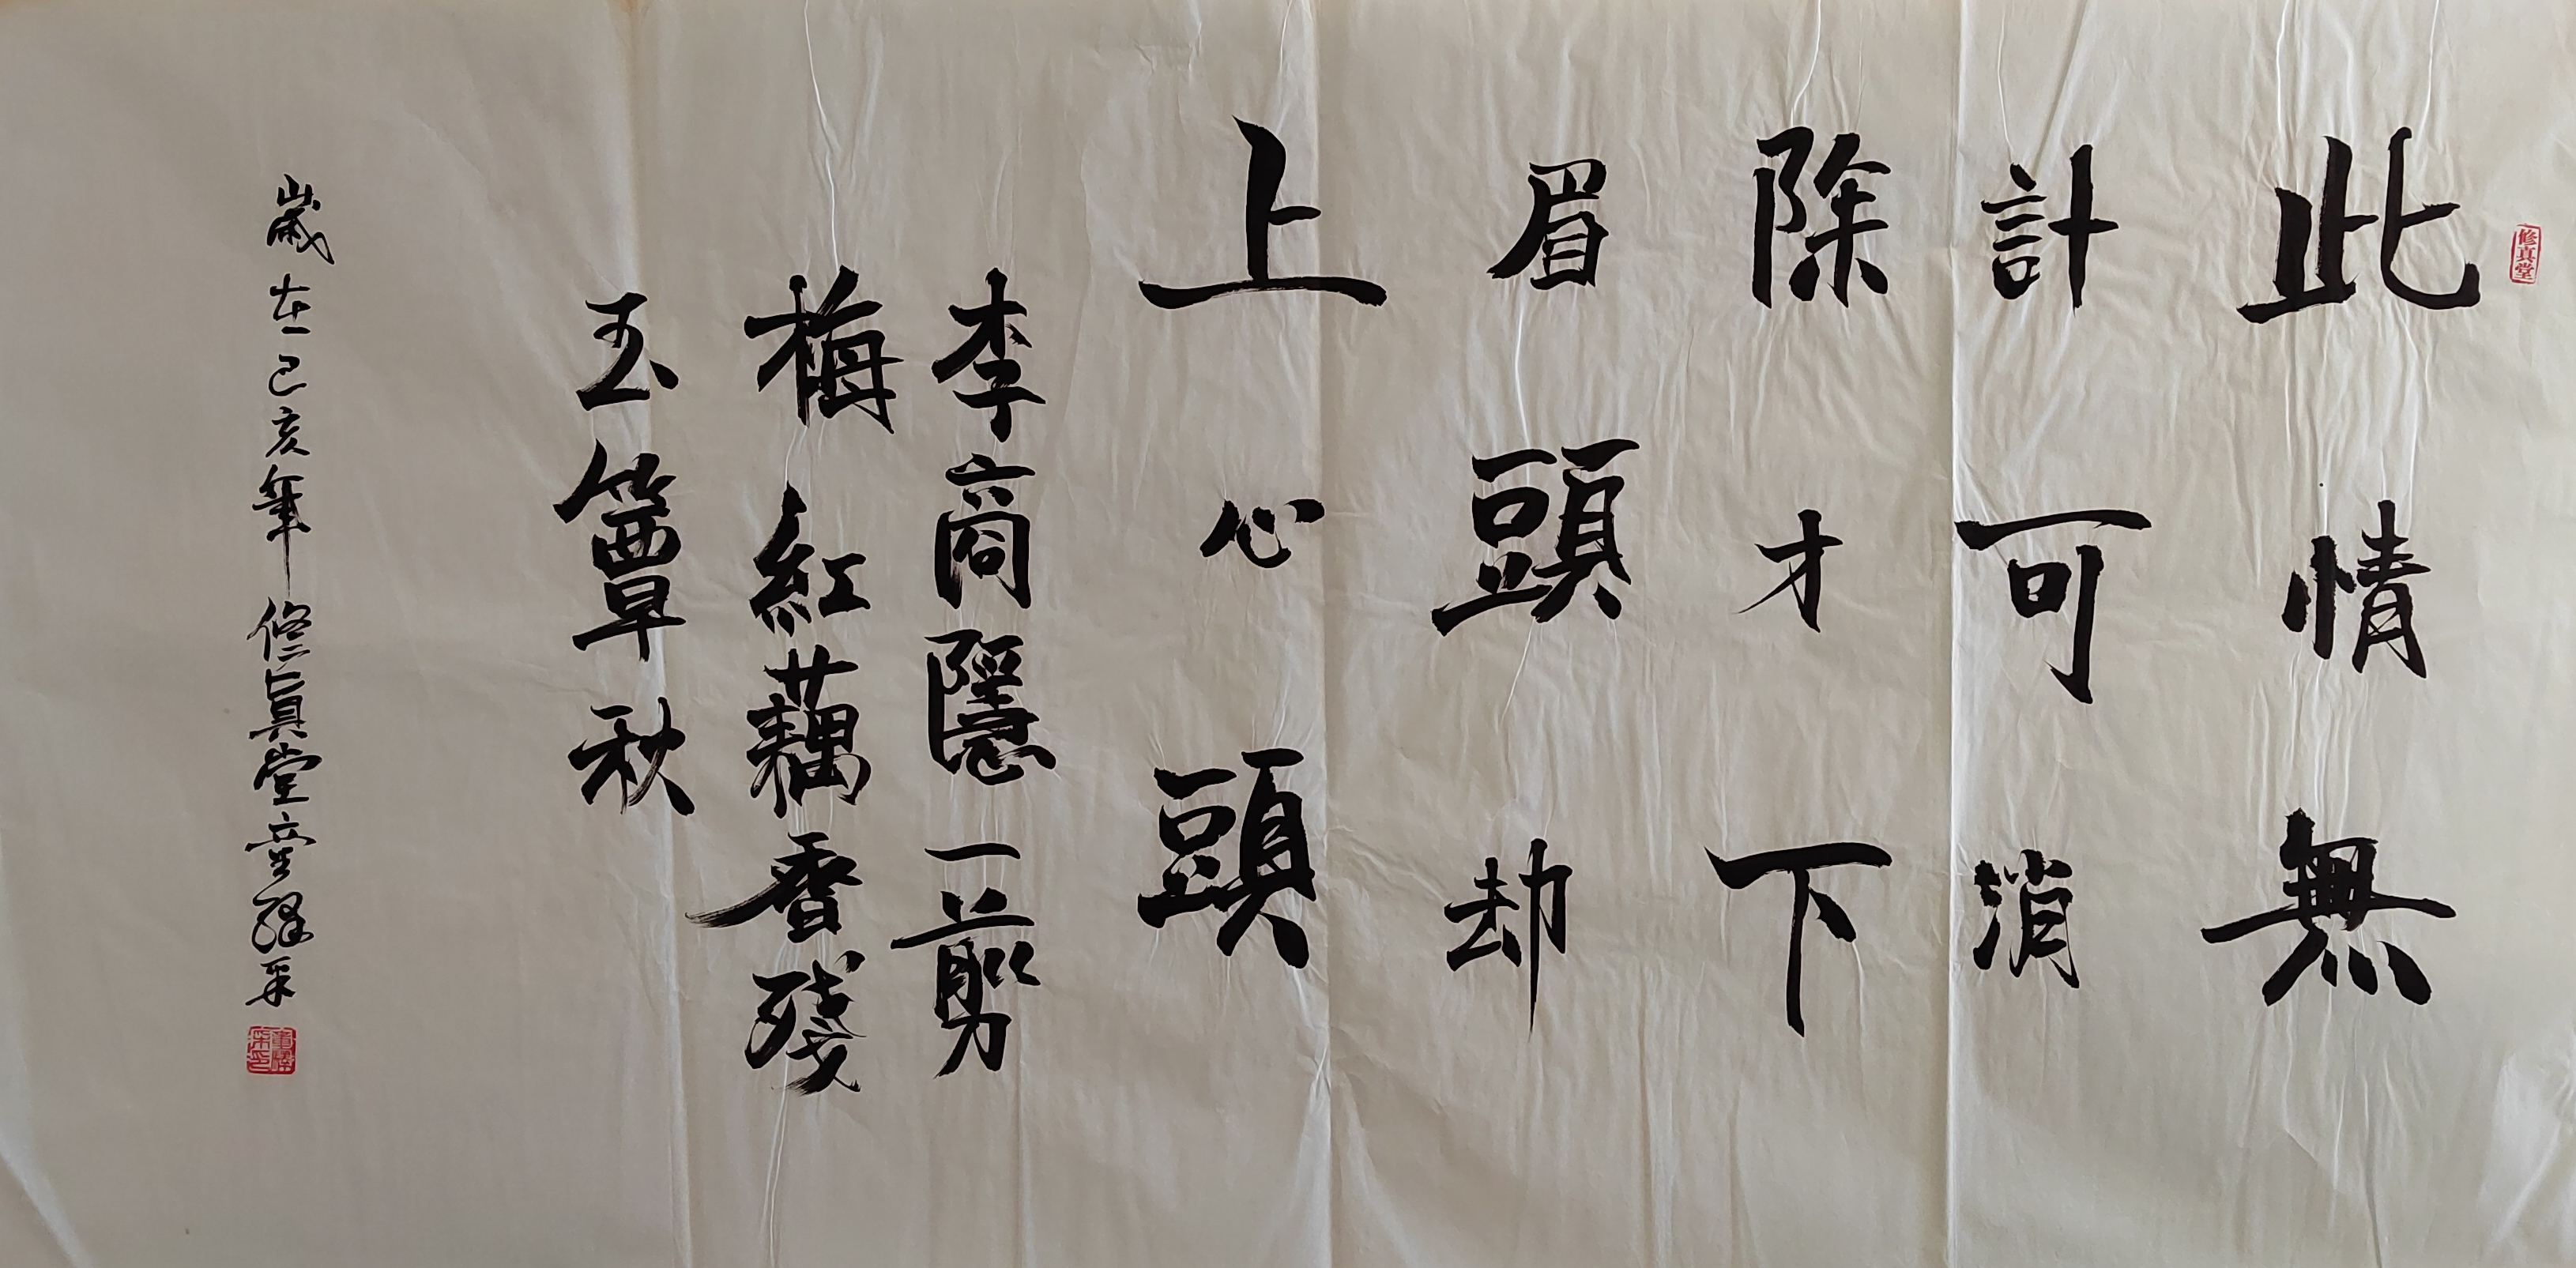 修真堂
此情無
計可消
除才下
眉頭却
上心頭
李商隱一剪
梅紅藕香殘
玉簟秋
歲在己亥年修真堂